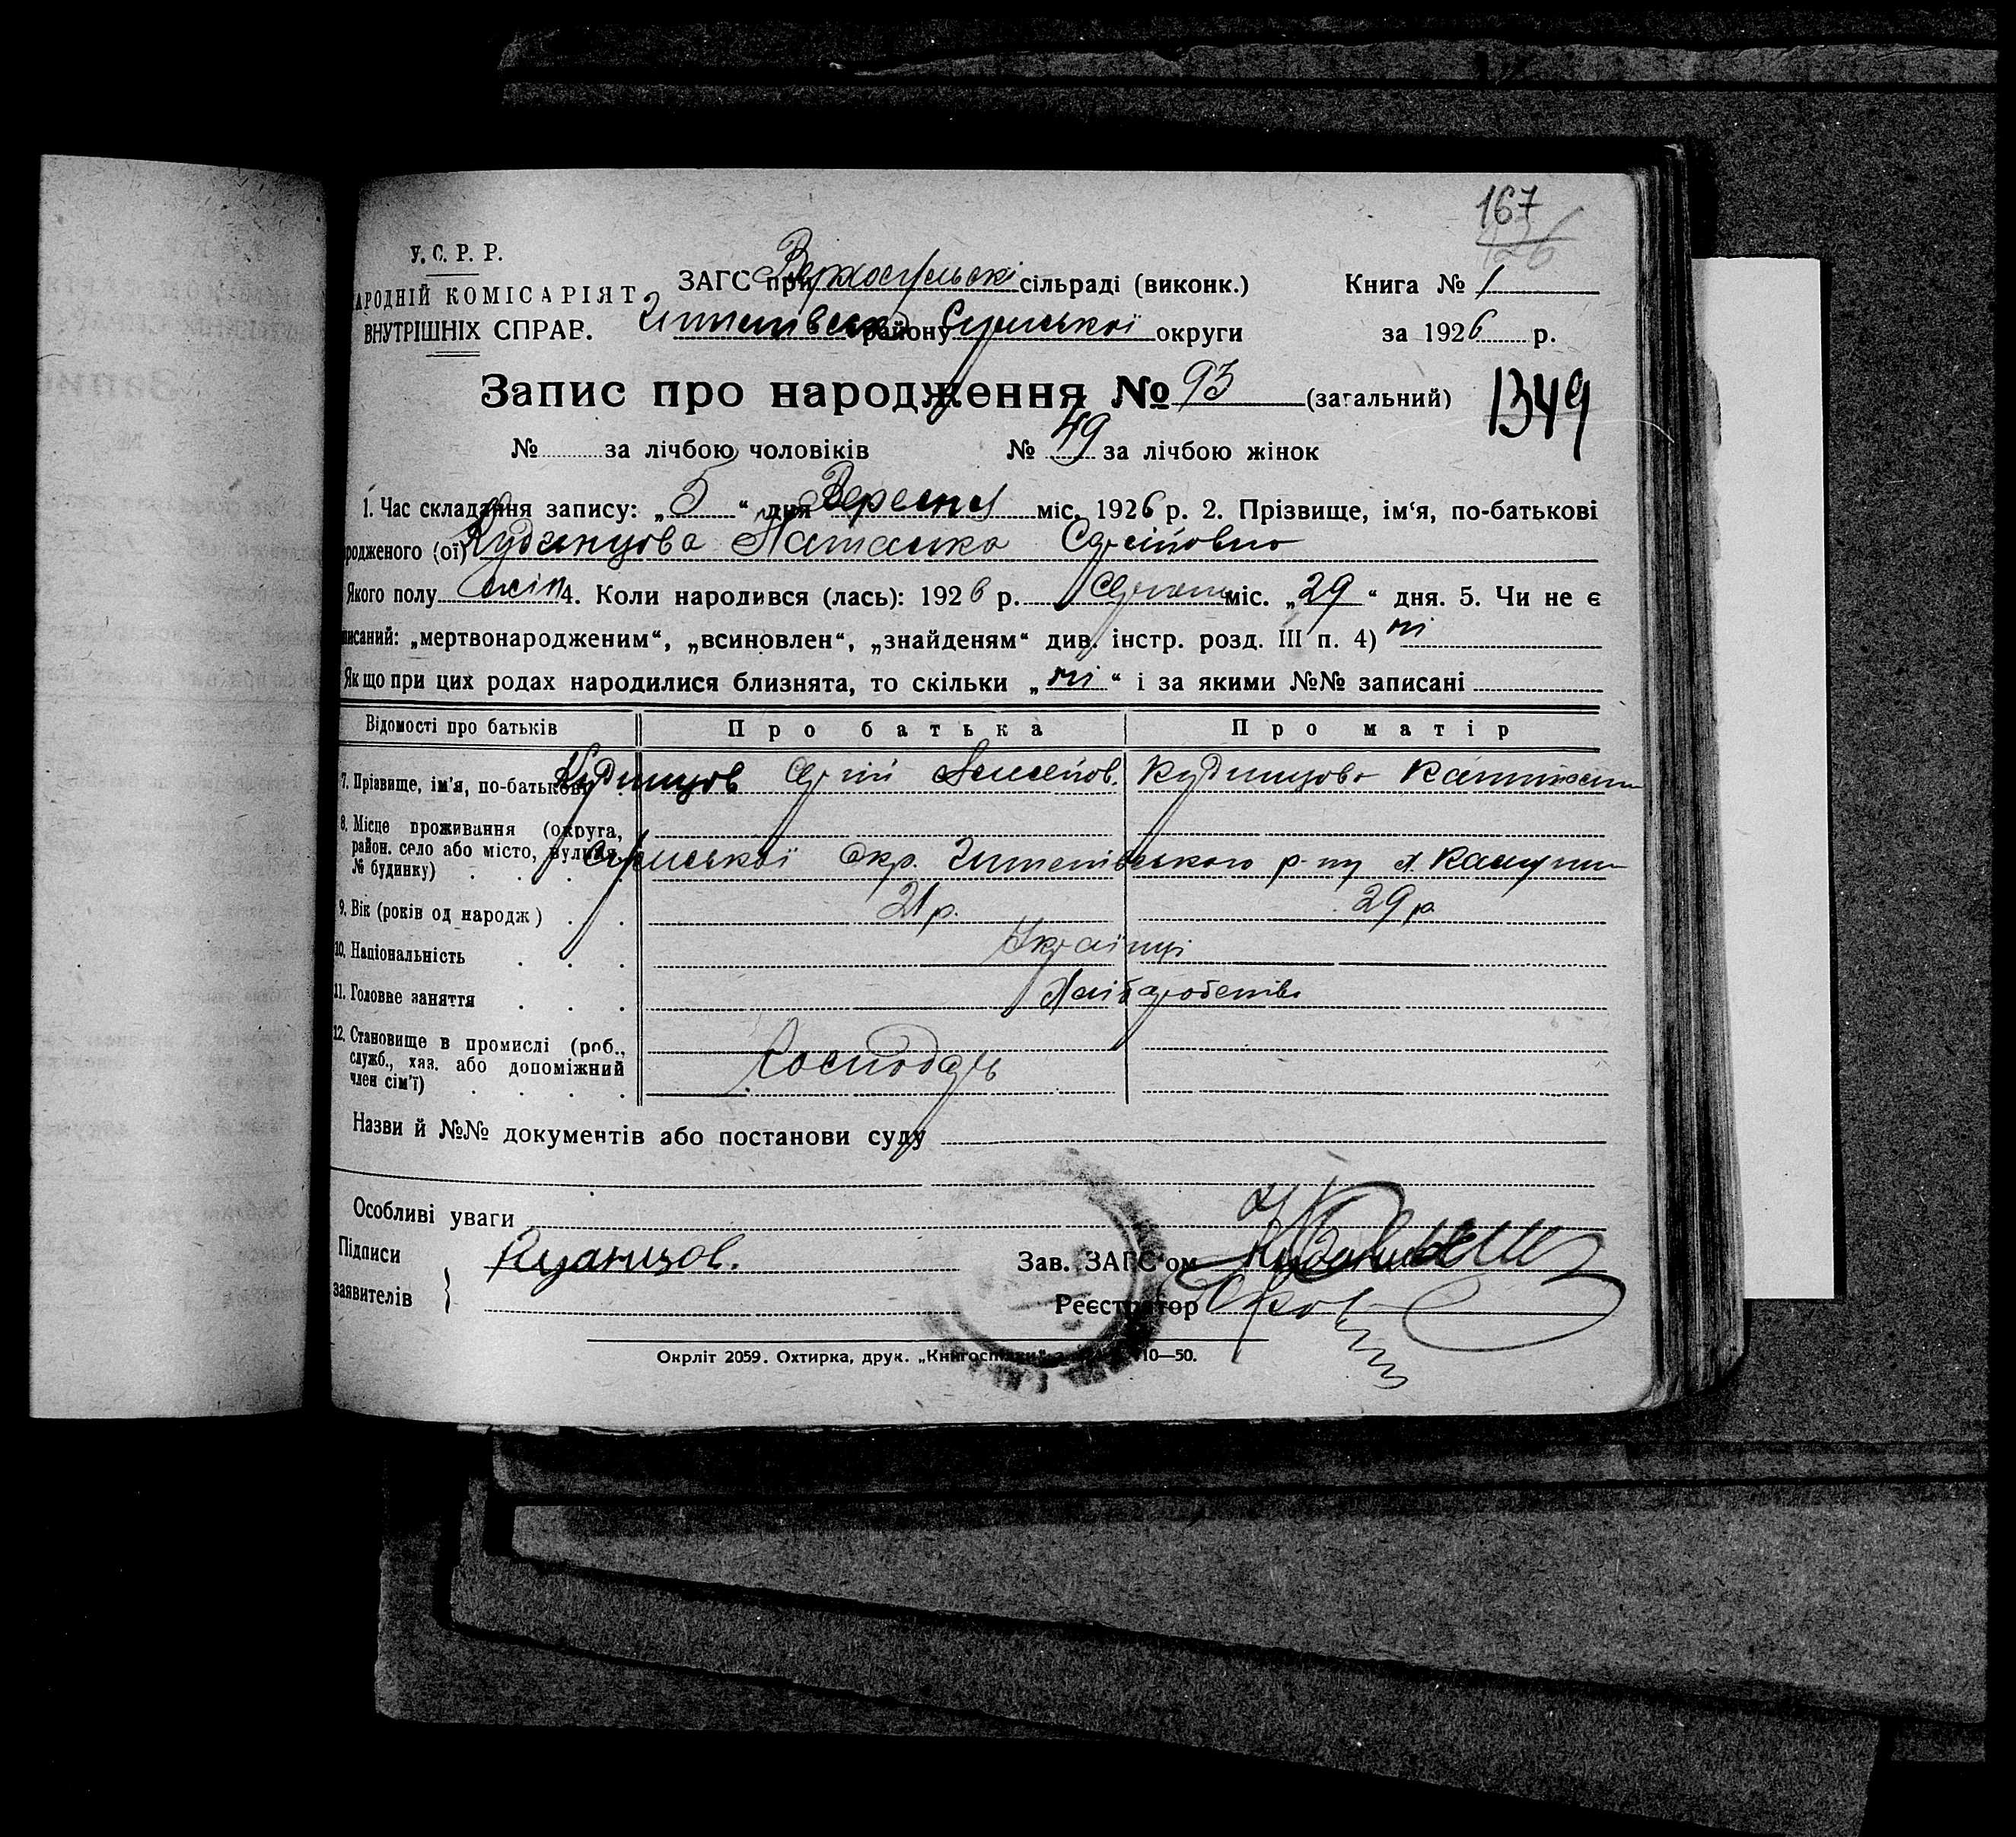 167
126
У. С. Р. Р.
АРОДНІЙ КОМІСАРІЯТ
ВНУТРІШНІХ СПРАВ.
ЗАГС при Верхосульські сільраді (виконк.)
району Сумської округи
Книга № 1
за 1926 р.
Запис про народження № 93 (загальний)
1349
№ за лічбою чоловіків № 49 за лічбою жінок
1. Час складання запису: „5“ дня Вересня міс. 1926 р. 2. Прізвище, ім‘я, по-батькові
родженого (ої) Кудинцова Наталка Сергіївна
Якого полу жін 4. Коли народився (лась): 1926 р. Серпня міс. „29“ дня. 5. Чи не є
писаний: „мертвонародженим“, „всиновлен“, „знайденям“ див. інстр. розд. III п. 4) ні
Якщо при цих родах народилися близнята, то скільки „ні“ і за якими №№ записані
Відомості про батьків Про батька Про матір
7. Прізвище, ім‘я, по-батькові Кудинцов Сергій Кудинцова
8. Місце проживання (округа,
район. село або місто, вулиця,
№ будинку) Сумської Окр. р-ну х.
9. Вік (років од народж) 21 р. 29 р.
10. Національність Українці
11. Головне заняття Хліборобство
12. Становище в промислі (роб.,
служб., хаз. або допоміжний
член сім‘ї) Господарь
Назви й №№ документів або постанови суду
Особливі уваги
Підписи
заявителів } Кудинцов.
Зав. ЗАГС‘ом
Реєстратор
Окрліт 2059. Охтирка, друк. „Книгоспілки“ 10—50.